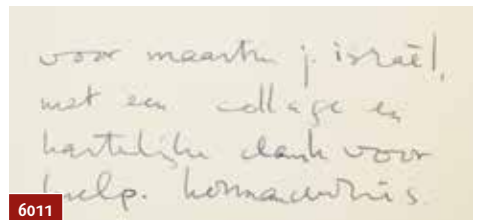 voor maarten j. israël,
met een collage en
hartelijke dank voor
hulp. hermandevries
6011